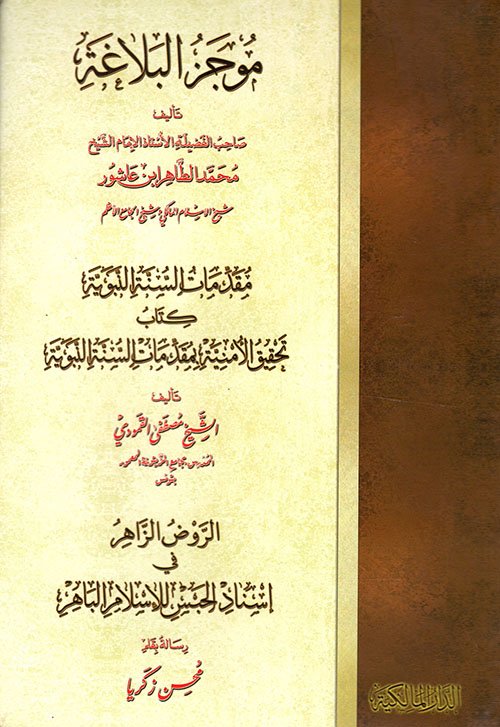 مُوجَزُ البَلاغَةِ
تأليف
صَاحِبُ الفَضيلَةِ الأُستاذ الإمَام الشَّيْخ
مُحَمَّد الطَّاهِر ابن عَاشُور
شيخ الإسلام المالكي وشيخ الجامع الأعظم
مُقَدِّمَاتُ السُّنَّةِ النَّبَوِيَّةِ
كِتَابُ
تَحْقِيقُ الأُمْنِيَّةِ بِمُقَدِّمَاتِ السُّنَّةِ النَّبَوِيَّةِ
تأليف
الشَّيْخ مُصْطَفَى القَمُودِيّ
المدرس بجامع الزيتونة المعمور
بتونس
الرَّوْضُ الزَّاهِرُ
فِي
إسْنَادِ الحَبْسِ لِلإِسْلَامِ البَاهِرِ
رسالة بقلم
مُحْسِن زَكَرِيَّا
الدَّار المَالِكِيَّة